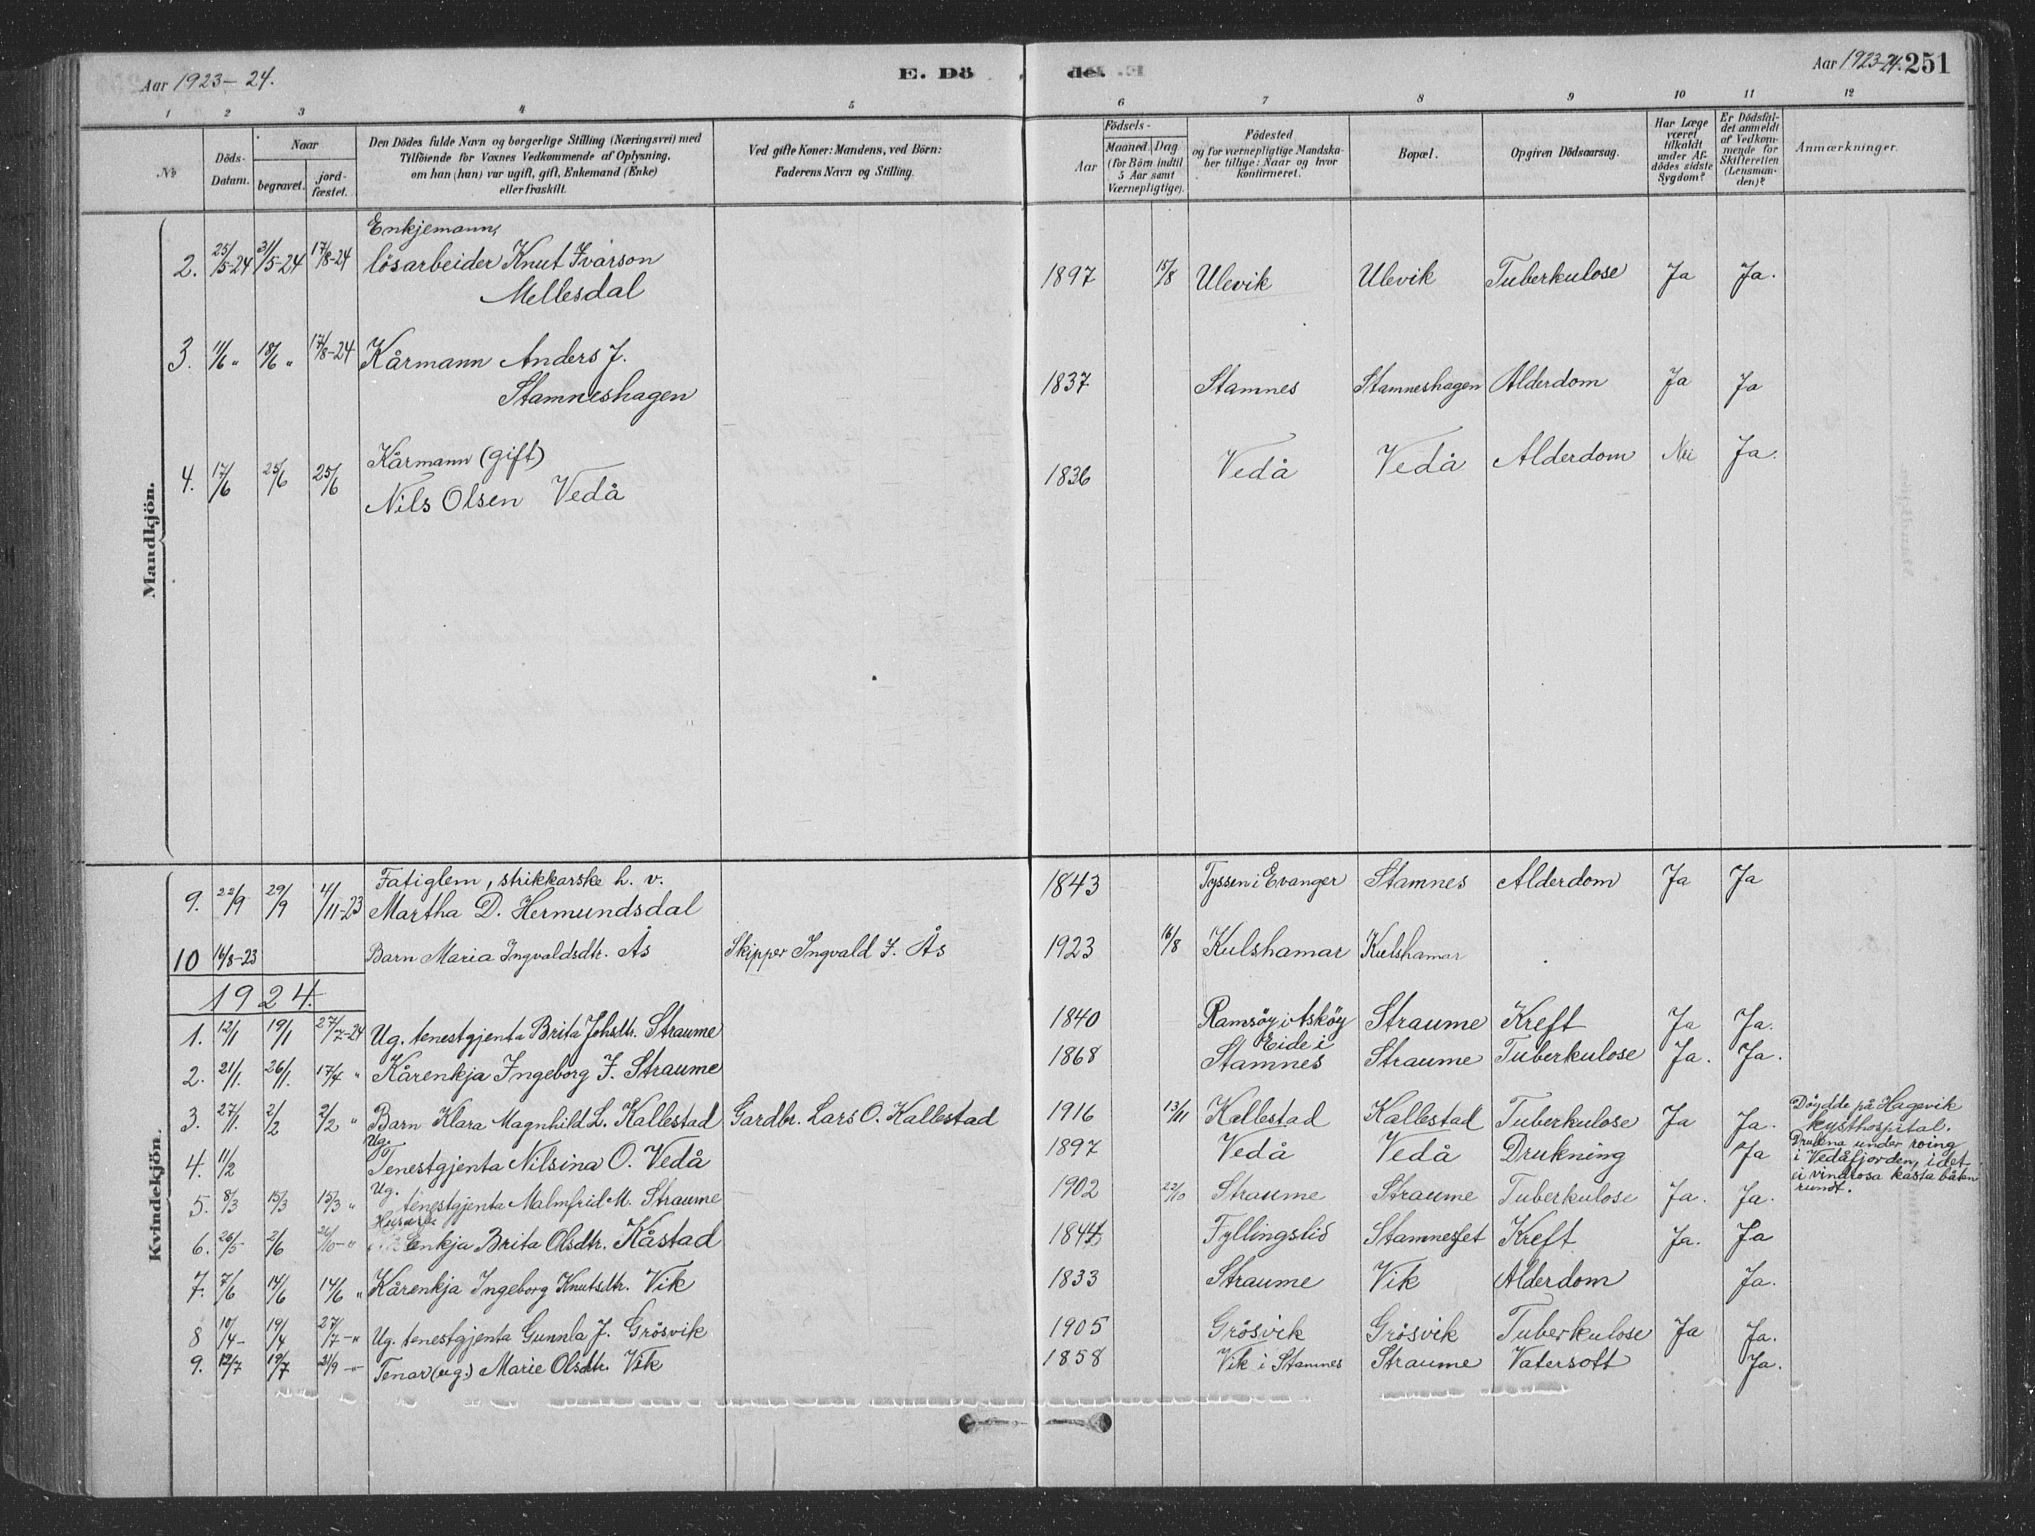 Aar 1923-24. E. Dö de. Aar 1923-24. 251
1 2 3 4 5 6 7 8 9 10 11 12
No
Döds-Datum.
Naar
begravet.
jord-fæstet.
Den Dödes fulde Navn og borgerlige Stilling (Næringsvei) med
Tilföiende for Voxnes Vedkommende af Oplysning,
om han (hun) var ugift, gift, Enkemand (Enke)
eller fraskilt.
Ved gifte Koner: Mandens, ved Börn:
Faderens Navn og Stilling.
Födsels-
Aar
Maaned. Dag
(for Börn indtil
5 Aar samt
Værnepligtige).
Födested
og for værnepligtige Mandska-
ber tillige: Naar og hvor
konfirmeret.
Bopæl.
Opgiven Dödsaarsag.
Har Læge
været
tilkaldt
under Af-
dödes sidste
Sygdom?
Er Dödsfal-
det anmeldt
af Vedkom-
mende for
Skifteretten
(Lensman-
den)?
Anmærkninger.
Mandkjön.
Enkjemann,
2. 25/5-24 31/5-24 17/8-24 lösarbeider Knut Ivarson 1897 15/8 Ulevik Ulevik Tuberkulose Ja Ja.
Mellesdal
3. 11/6 " 18/6 " 17/8-24 Kårmann Anders J. 1837 Stamnes Stamneshagen Alderdom Ja Ja
Stamneshagen
Kårmann (gift)
4. 17/6 25/6 25/6 Nils Olsen Vedå 1836 Vedå Vedå Alderdom Nei Ja.
Kvindekjön.
Fatiglem, strikkarske h. v.
9. 22/9 29/9 4/11-23 Martha D. Hermundsdal 1843 Tyssen i Evanger Stamnes Alderdom Ja Ja
10 16/8-23 Barn Maria Ingvaldsdtr. Ås Skipper Ingvald J. Ås 1923 16/8 Kulshamar Kulshamar
1924.
1. 12/1 19/1 27/7-24 Ug. tenestgjenta Brita Johsdtr. Straume 1840 Ramsöy i Asköy Straume Kreft Ja Ja.
Eide i
2. 21/1. 26/1. 17/4 " Kårenkja Ingeborg J. Straume 1868 Stamnes Straume Tuberkulose Ja. Ja.
3. 27/1. 2/2 2/2 " Barn Klara Magnhild L. Kallestad Gardbr. Lars O. Kallestad 1916 13/11 Kallestad Kallestad Tuberkulose Ja Ja. Döydde på Hagevik
kysthospital.
Ug.
4. 11/2 Tenestgjenta Nilsina O. Vedå 1897 Vedå Vedå Drukning Ja Drukna under roing
i Vedåfjorden, idet
ei vindrosa kasta båten
rundt.
Ug.
5. 8/3 15/3 15/3 " tenestgjenta Malmfrid M. Straume 1902 22/10 Straume Straume Tuberkulose Ja. Ja.
6. 26/5 2/6 26/10-" Enkja Brita Olsdtr. Kåstad 1844 Fyllingslid Stamneset Kreft Ja. Ja
7. 7/6 14/6 14/6 " Kårenkja Ingeborg Knutsdtr. Vik 1833 Straume Vik Alderdom Ja.
8 10/4- 19/4 27/7-" Ug. tenestgjenta Gunnla J. Grösvik 1905 Grösvik Grösvik Tuberkulose Ja Ja.
9. 12/7 19/7 21/9 -" Tenar (ug.) Marie Olsdtr. Vik 1858 Vik i Stamnes Straume Vatersott Ja.